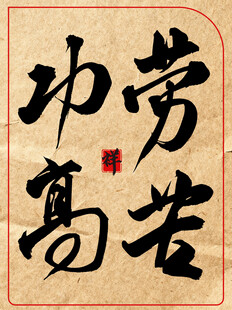 劳苦
功高
祥